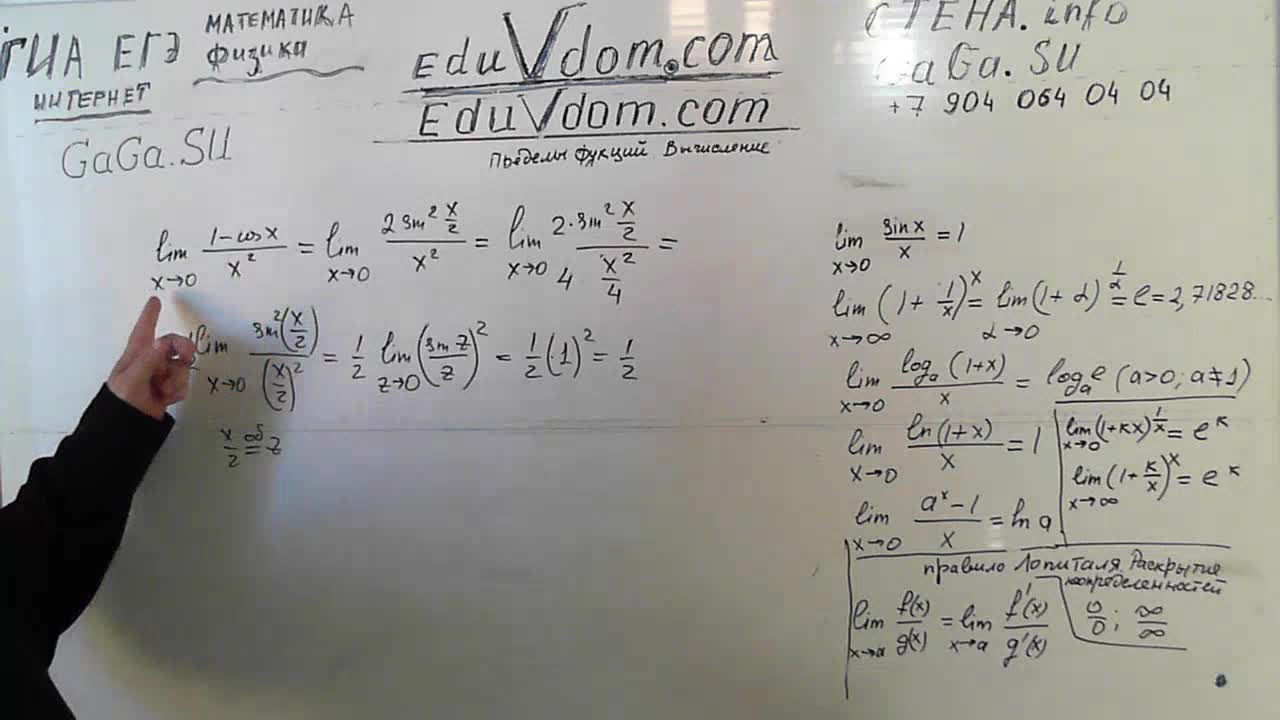 ГИА ЕГЭ МАТЕМАТИКА
физика
ИНТЕРНЕТ
GaGa.SU
EduVdom.com
EduVdom.com
Пределы Фукций Вычисление
СТЕНА.info
GaGa.SU
+7 904 064 04 04
lim x→0 (1-cosx)/x² = lim x→0 (2 sin² x/2)/x² = lim x→0 (2·sin² x/2)/(4 x²/4) =
lim x→0 sin²(x/2)/(x/2)² = 1/2 lim z→0 (sin z/z)² = 1/2 (1)² = 1/2
x/2 об= z
lim x→0 sinx/x = 1
lim x→∞ (1+1/x)^x = lim α→0 (1+α)^(1/α) = e = 2,71828...
lim x→0 log_a(1+x)/x = log_a e (a>0; a≠1)
lim x→0 ln(1+x)/x = 1
lim x→0 (1+кx)^(1/x) = e^к
lim x→∞ (1+к/x)^x = e^к
lim x→0 (a^x-1)/x = ln a
правило Лопиталя. Раскрытие
неопределенностей
lim x→a f(x)/g(x) = lim x→a f'(x)/g'(x)
0/0; ∞/∞